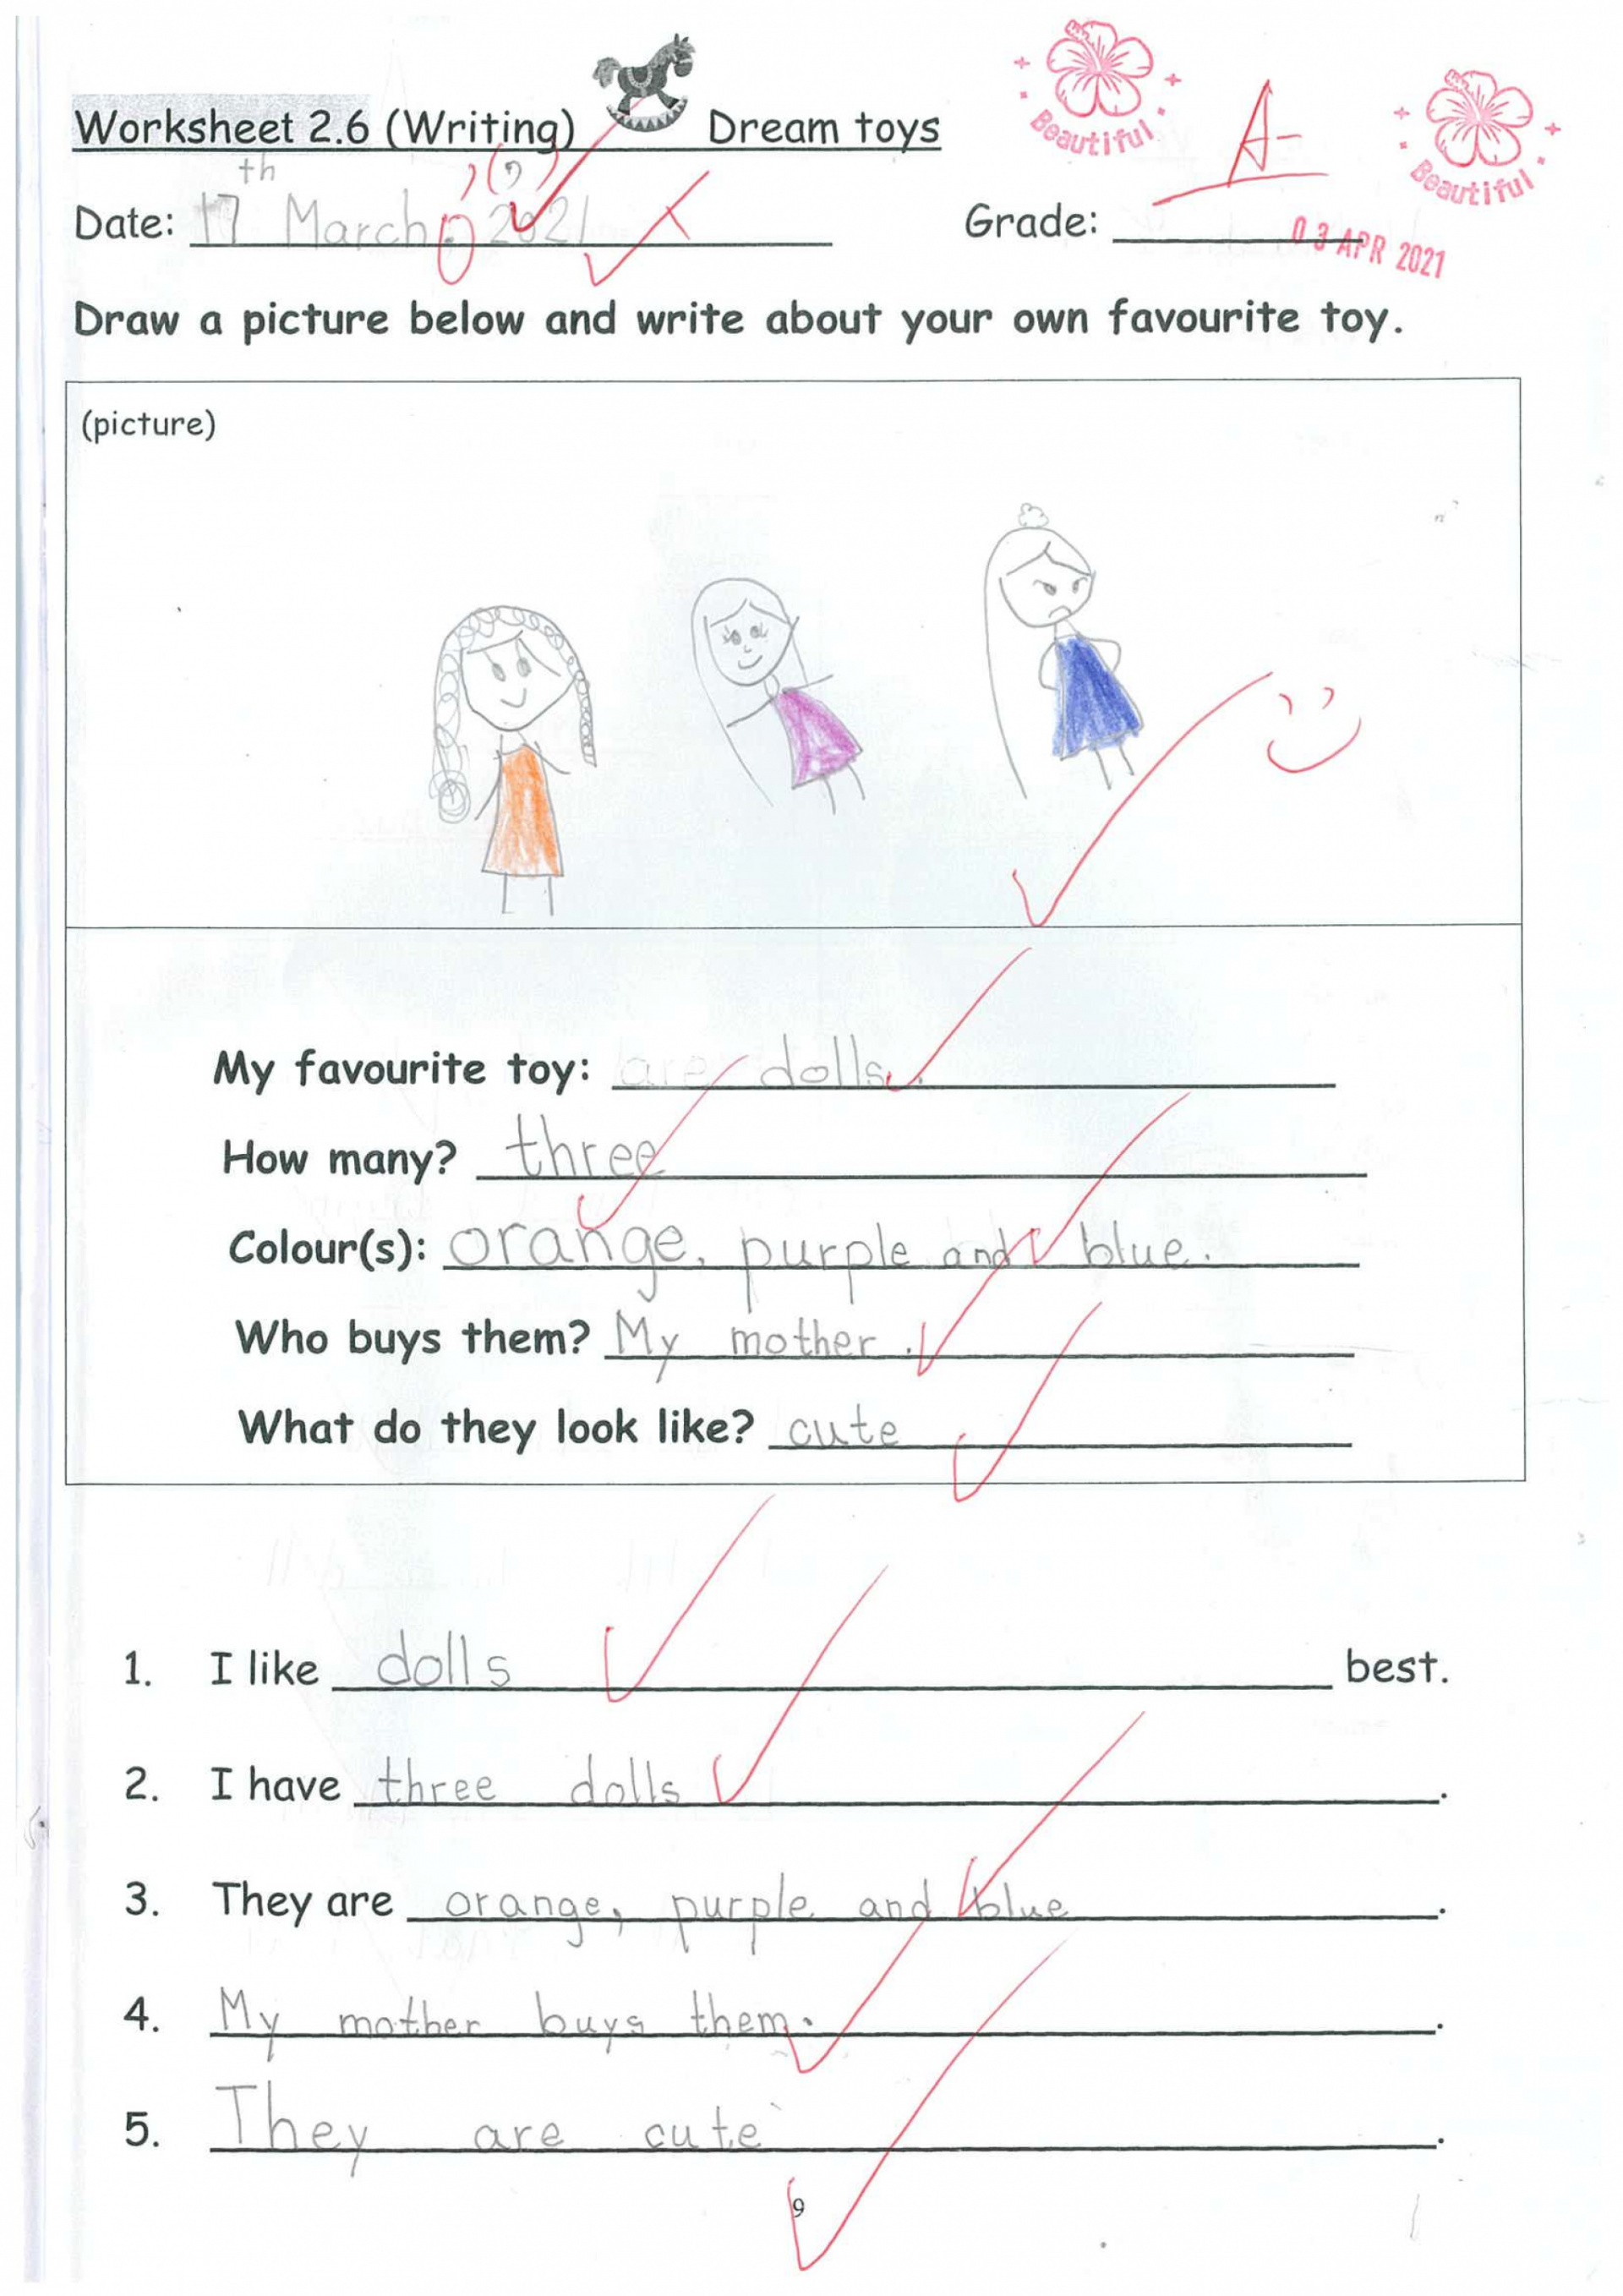 Worksheet 2.6 (Writing) Dream toys
Beautiful
A-
Beautiful
th
Date: 17 March, 2021
Grade:
03 APR 2021
Draw a picture below and write about your own favourite toy.
(picture)
My favourite toy: are dolls.
How many? three
Colour(s): orange, purple and blue.
Who buys them? My mother.
What do they look like? cute
1. I like dolls best.
2. I have three dolls.
3. They are orange, purple and blue.
4. My mother buys them. .
5. They are cute.
9